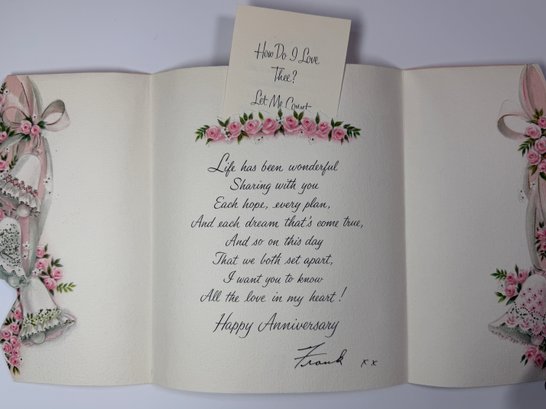 How Do I Love
Thee?
Let Me Count
Life has been wonderful
Sharing with you
Each hope, every plan,
And each dream that's come true,
And so on this day
That we both set apart,
I want you to know
All the love in my heart!
Happy Anniversary
Frank xx